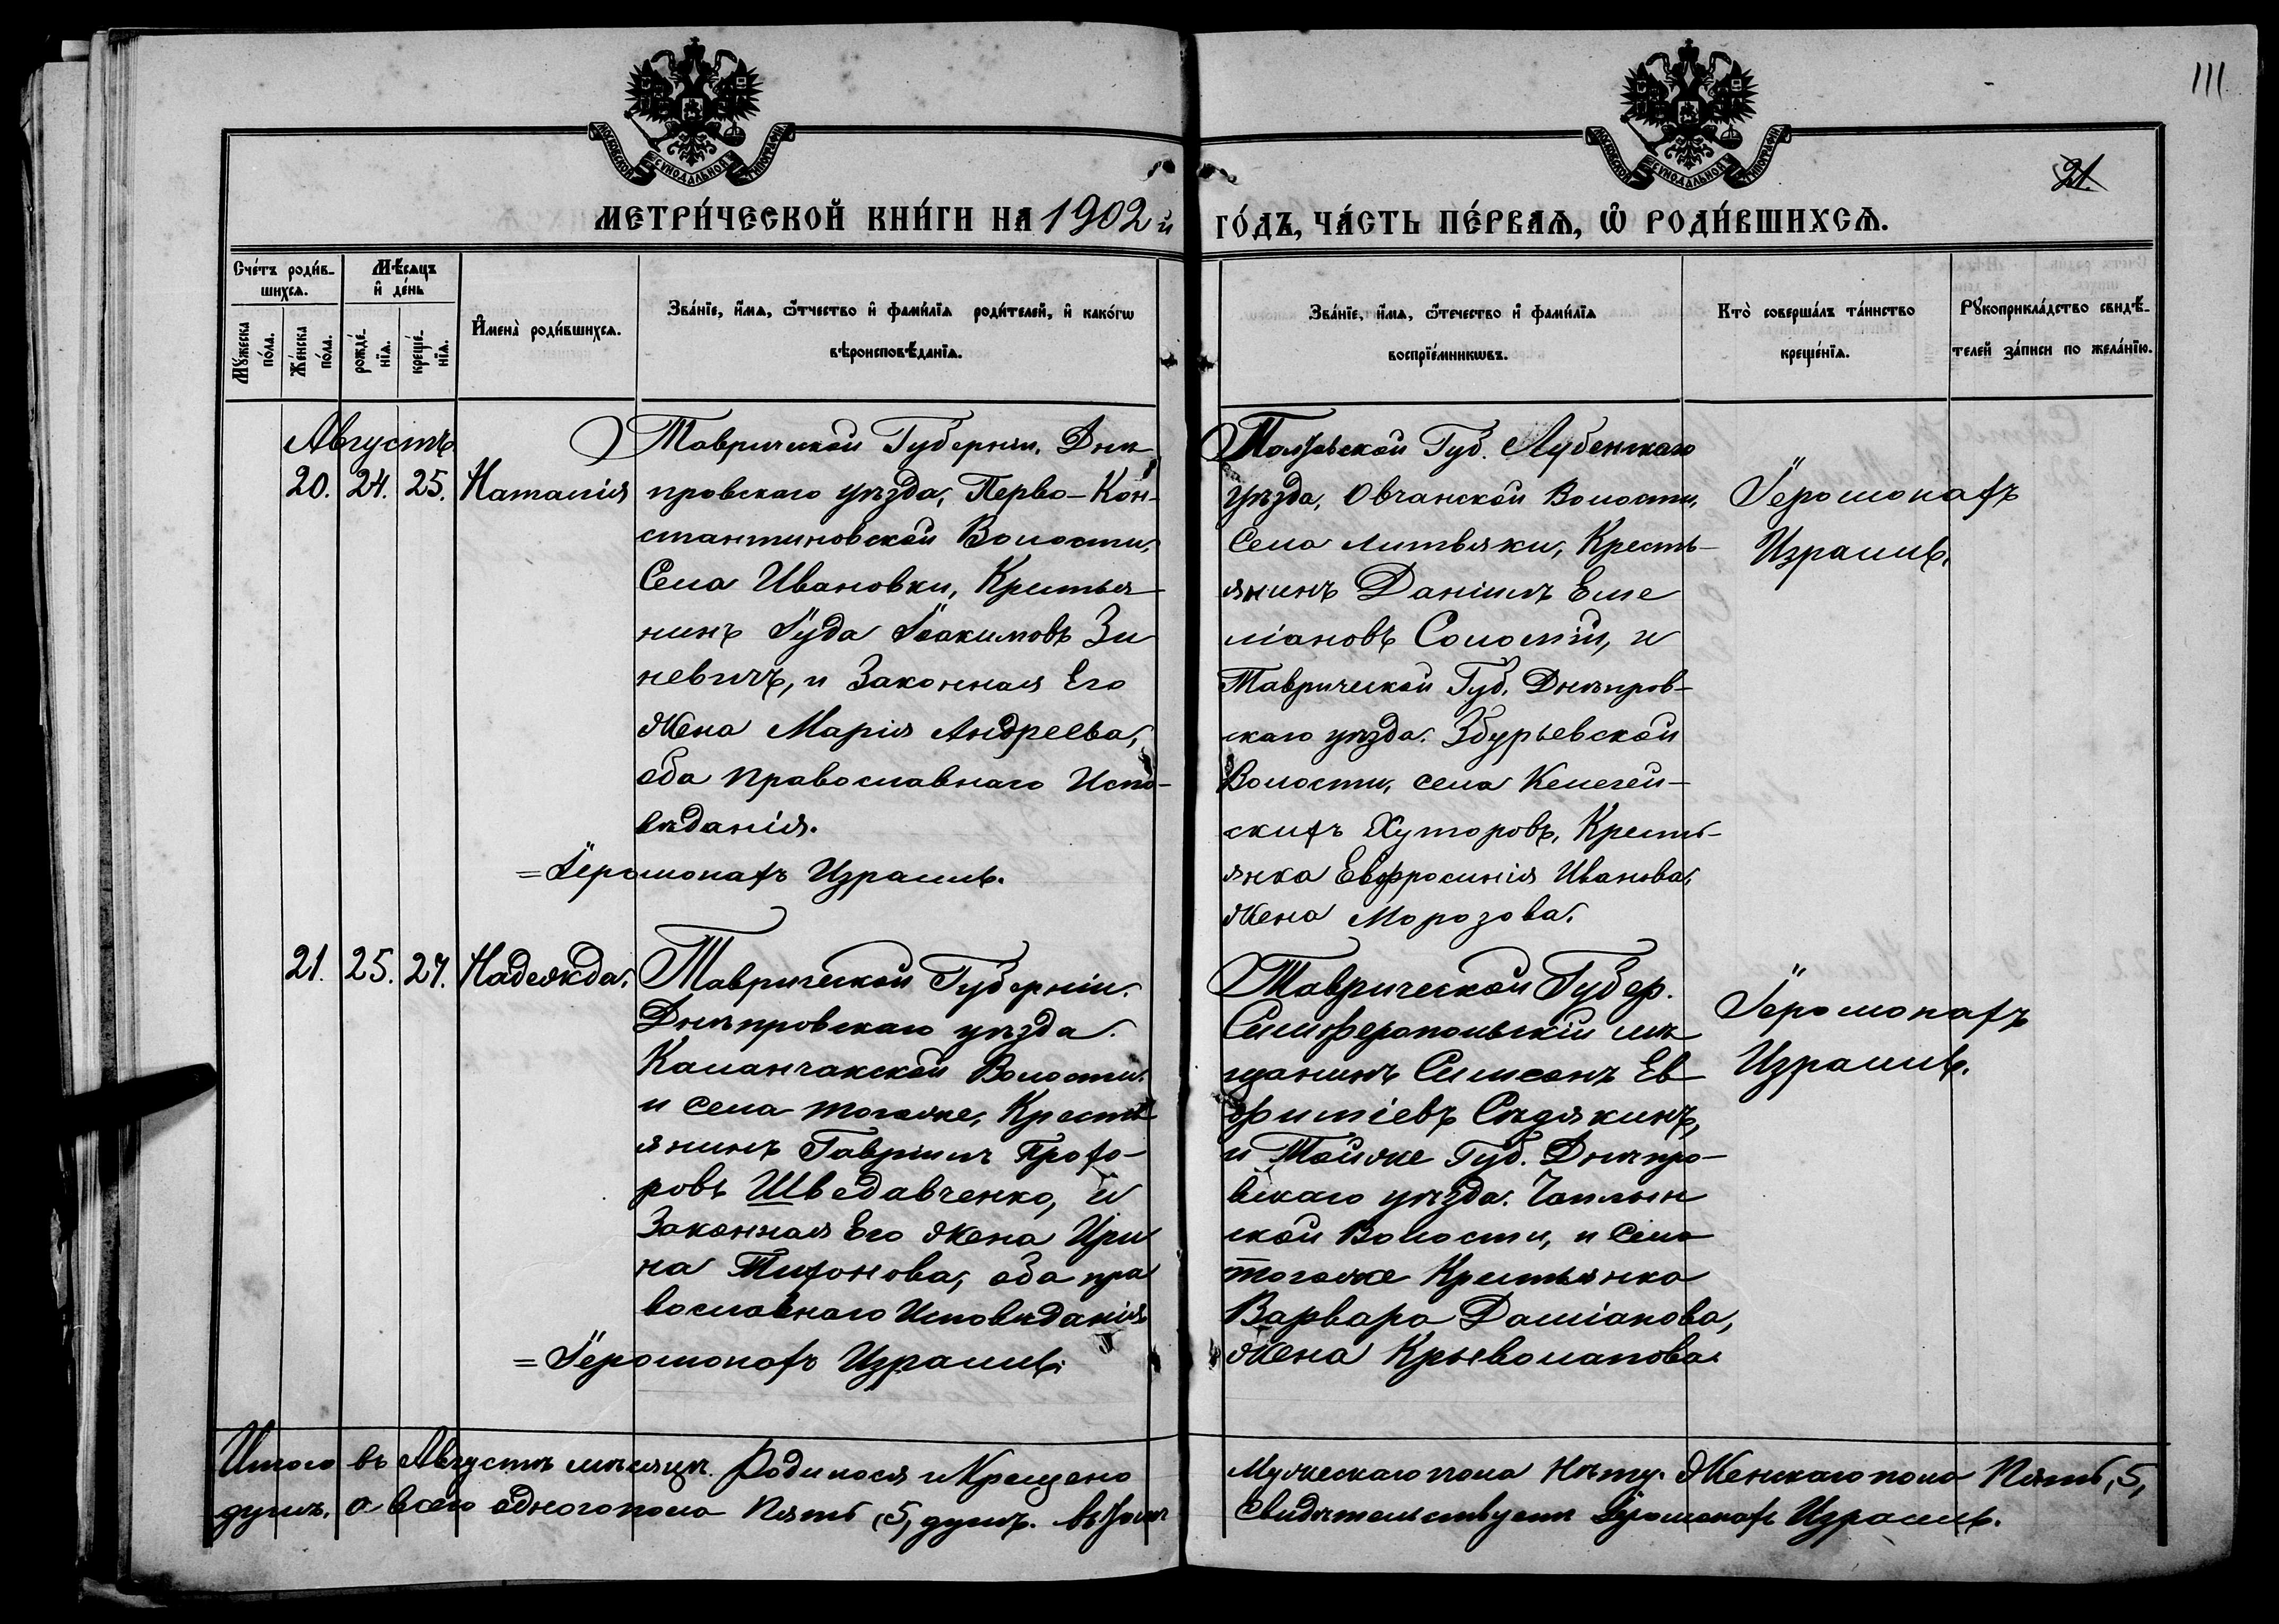 111
21.
МОСКОВСКОЙ СѴНОДАЛЬНОЙ ТИПОГРАФІИ
МОСКОВСКОЙ СѴНОДАЛЬНОЙ ТИПОГРАФІИ
МЕТРИ́ЧЕСКОЙ КНИ́ГИ НА 1902 й
ГО́ДЪ, ЧА́СТЬ ПЕ́РВАѦ, Ѡ҆ РОДИ́ВШИХСѦ.
Сче́тъ роди́в-
шихсѧ.
Мꙋ́жеска по́ла.
Же́нска по́ла.
Мѣ́сѧцъ
и҆ де́нь
рожде́-
нїѧ.
креще́-
нїѧ.
И҆мена̀ роди́вшихсѧ.
Зва́нїе, и҆́мѧ, ѻ҆́тчество и҆ фами́лїѧ роди́телей, и҆ како́гѡ
вѣроисповѣ́данїѧ.
Зва́нїе, и҆́мѧ, ѻ҆́течество и҆ фами́лїѧ
воспрїе́мникѡвъ.
Кто̀ соверша́лъ та́инство
креще́нїѧ.
Рꙋкоприкла́дство свидѣ́-
телей за́писи по жела́нїю.
Августъ
20. 24. 25. Наталія
Таврической Губерніи, Днѣ-
провскаго уѣзда, Перво-Кон-
стантиновской Волости,
Села Ивановки, Крестья-
нинъ Іуда Іоакимовъ Зи
невичъ, и Законная Его
Жена Марія Андреева,
оба Православнаго Испо-
вѣданія.
=Іеромонахъ Израиль.
Полтавской Губ. Лубенскаго
уѣзда, Овчанской Волости,
Села Литвяки, Кресть-
янинъ Даніилъ Еме
ліановъ Солопій, и
Таврической Губ. Днѣпров-
скаго уѣзда. Збурьевской
Волости, села Келегей-
скихъ Хуторовъ, Кресть-
янка Евфросинія Иванова,
Жена Морозова.
Іеромонахъ
Израиль.
21. 25. 27. Надежда.
Таврической Губерніи.
Днѣпровскаго уѣзда.
Каланчакской Волости.
и Села тогоже, Кресть
янинъ Гавріилъ Прохо-
ровъ Шведавченко, и
Законная Его Жена Ири
на Тихонова, оба пра
вославнаго Исповѣданія
=Іеромонахъ Израиль.
Таврической Губер.
Симферопольскій мѣ
щанинъ Симеонъ Ев
фиміевъ Сѣдякинъ,
и Тойже Губ. Днѣпро-
вскаго уѣзда. Чаплын
ской Волости, и Села
тогоже Крестьянка
Варвара Даміанова,
Жена Крывошапова.
Іеромонахъ
Израиль.
Итого въ Августѣ мѣсяцѣ. Родилося и Крещено
Мужескаго пола Нѣту. Женскаго пола Пять, 5,
душъ. а всего одного пола Пять, 5, душъ.
Свидѣтельствуетъ Іеромонахъ Израиль.